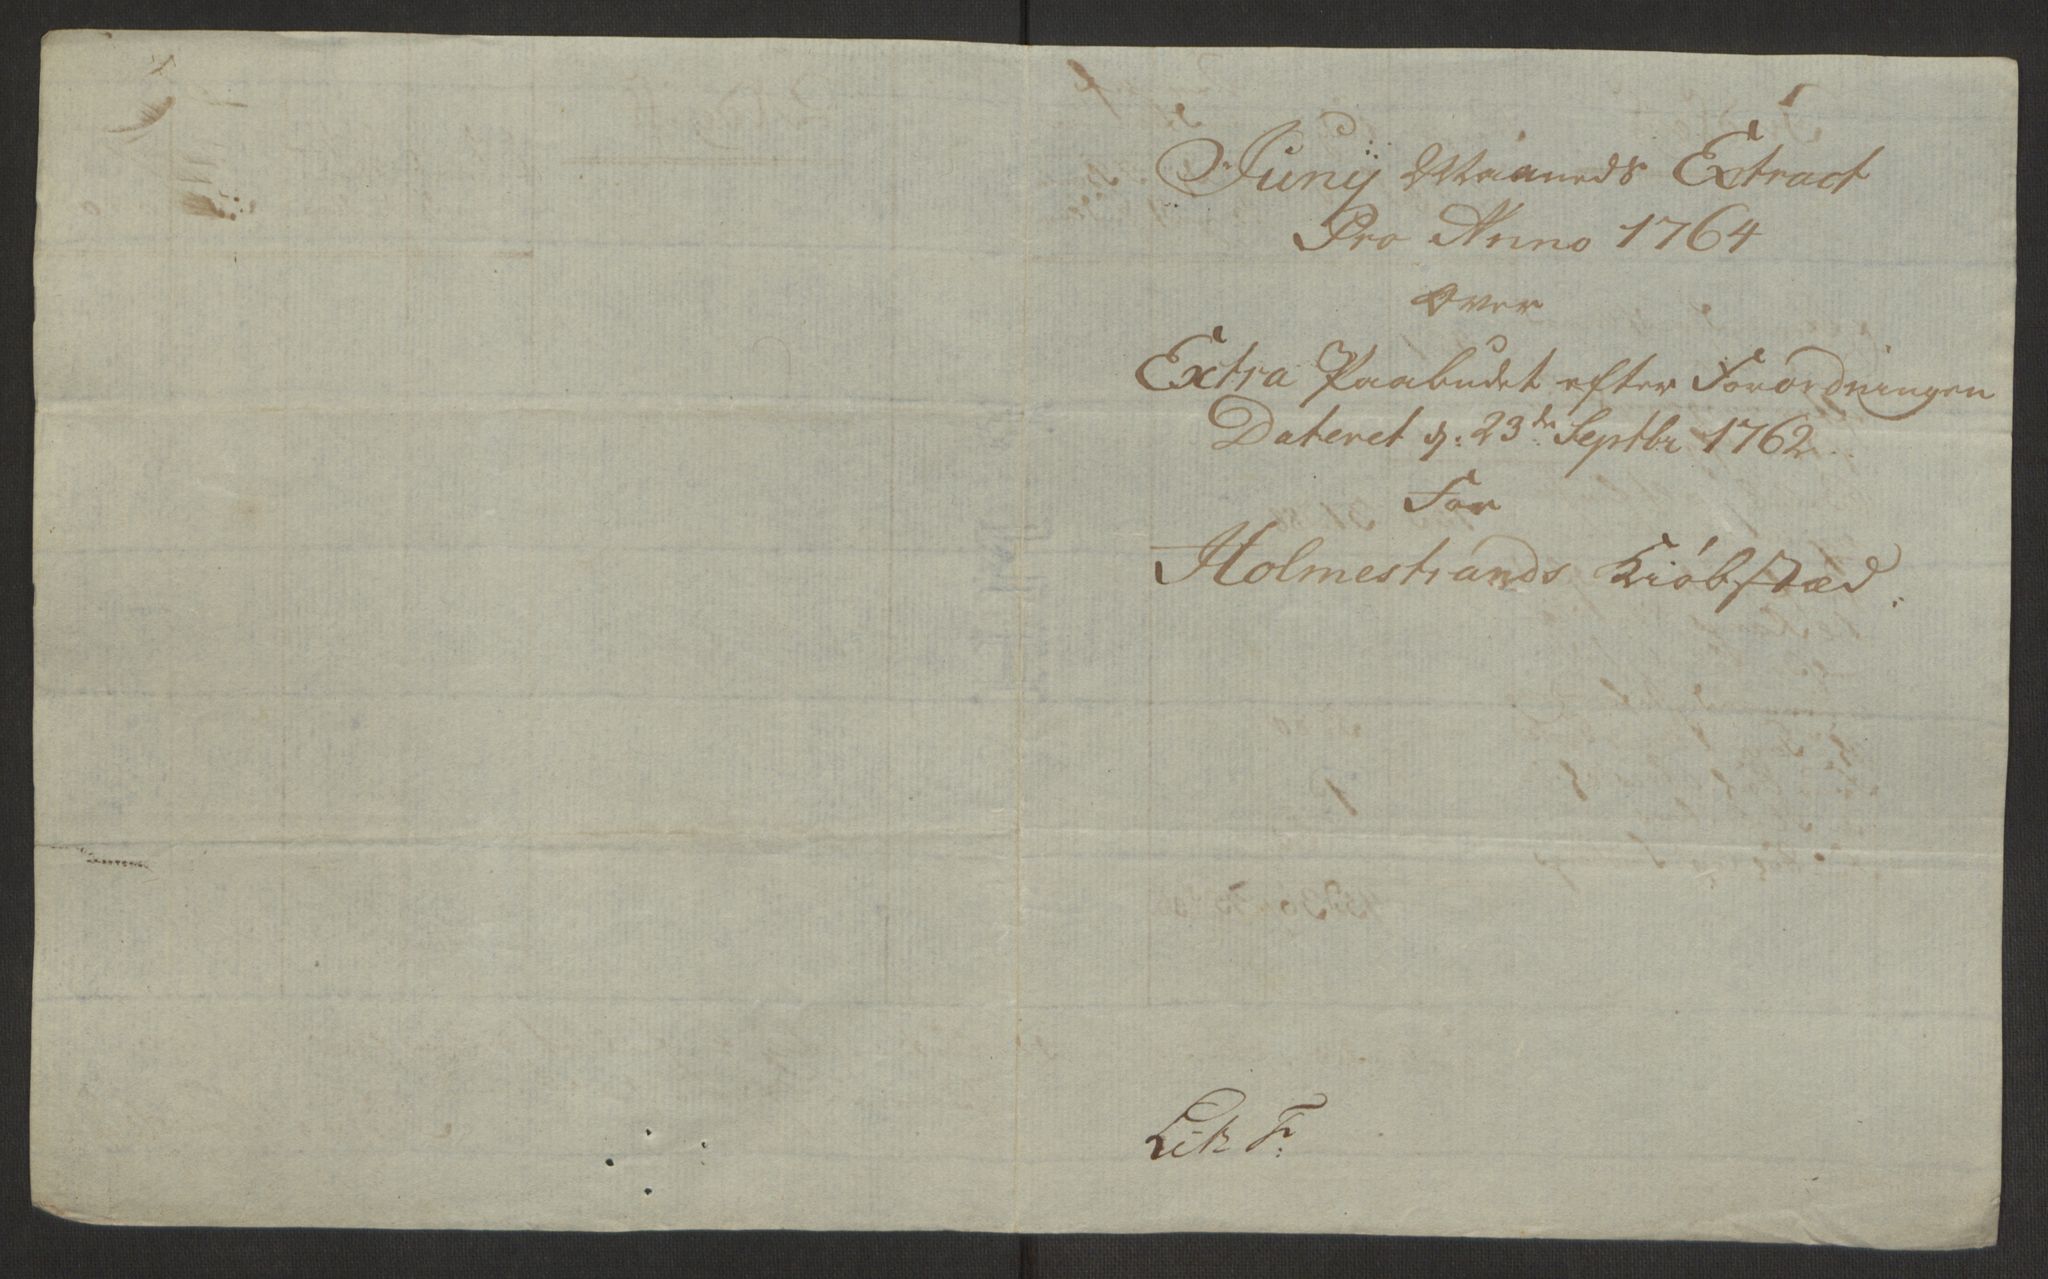 Junij Maaneds Extract
Pro Anno 1764
Over
Extra Paabudet efter Forordningen
Dateret d: 23de Septbr 1762
For
Holmestrands Kiøbstæd.
Litr F: